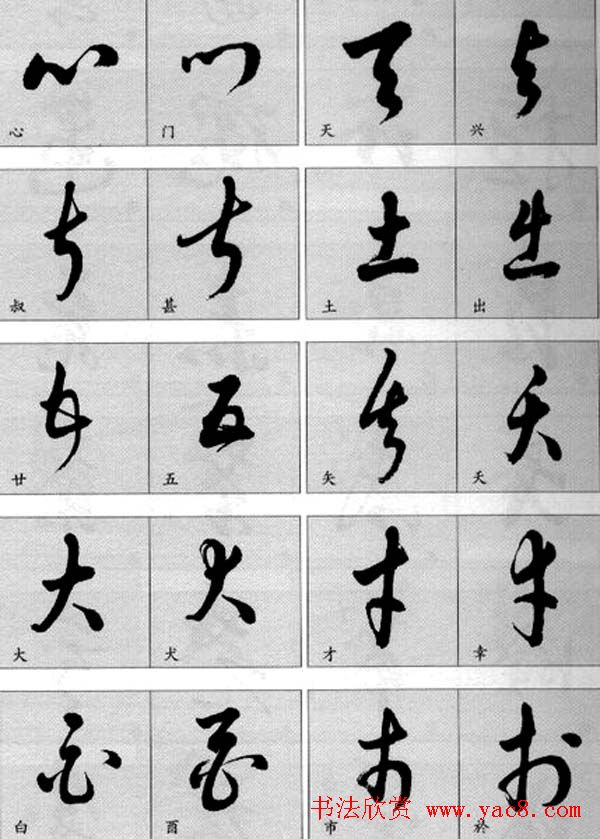 心 门 天 兴
叔 甚 土 出
廿 五 矢 夭
大 犬 才 幸
白 酉 市 於
书法欣赏 www.yac8.com